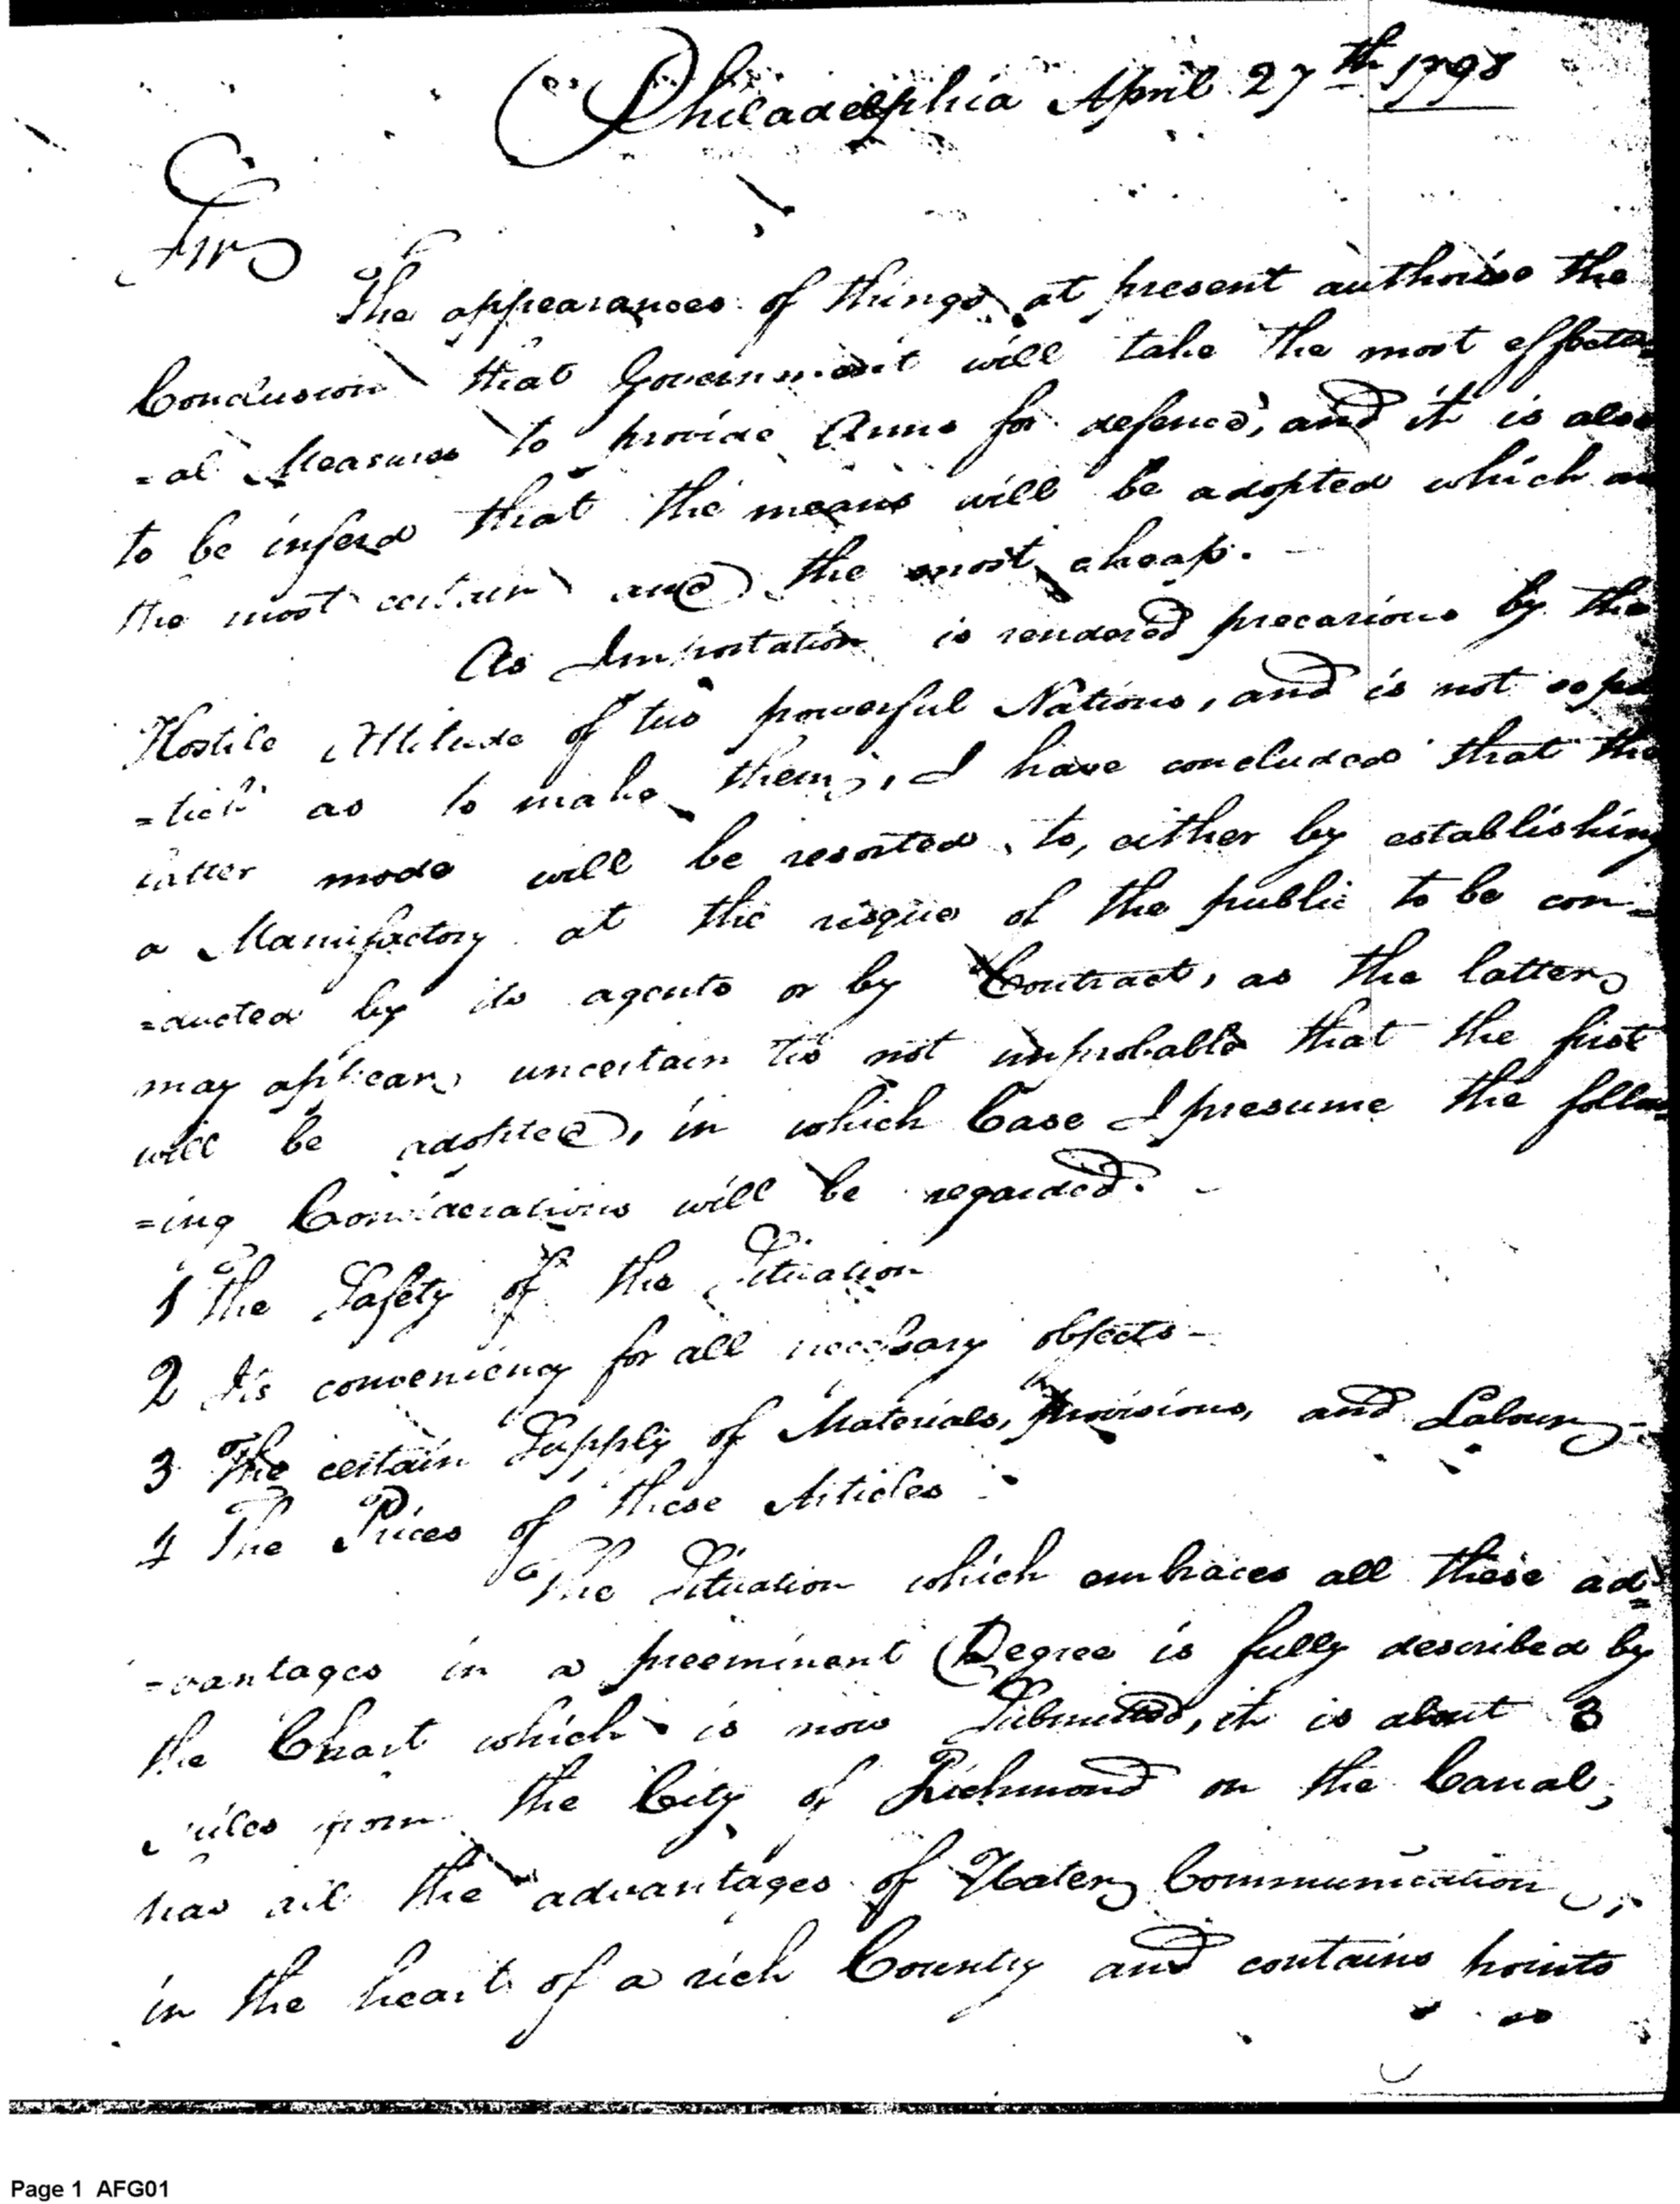 Philadelphia April 27th 1798
Sir
The appearances of things at present authorise the
Conclusion that Government will take the most effectu
=al Measures to provide Arms for defence, and it is also
to be inferd that the means will be adopted which are
the most certain and the most cheap. –
As Importation is rendered precarious by the
Hostile Attitude of two powerful Nations, and is not so
as to make them, I have concluded that the
latter mode will be resorted to, either by establishing
a Manufactory at the risque of the public to be con=
=ducted by its agents or by Contract, as the latter
may appear uncertain tis not improbable that the first
will be adopted, in which Case I presume the follow
=ing Considerations will be regarded. –
1 The Safety of the Situation
2 It's conveniency for all necessary objects –
3 The certain Supply of Materials, provisions, and Labour –
4 The Prices of these Articles –
The Situation which embraces all these ad=
=vantages in a preeminent Degree is fully described by
the Chart which is now Submitted, it is about 3
Miles from the City of Richmond on the Canal,
has all the advantages of Water Communication,
in the heart of a rich Country and contains points
Page 1 AFG01